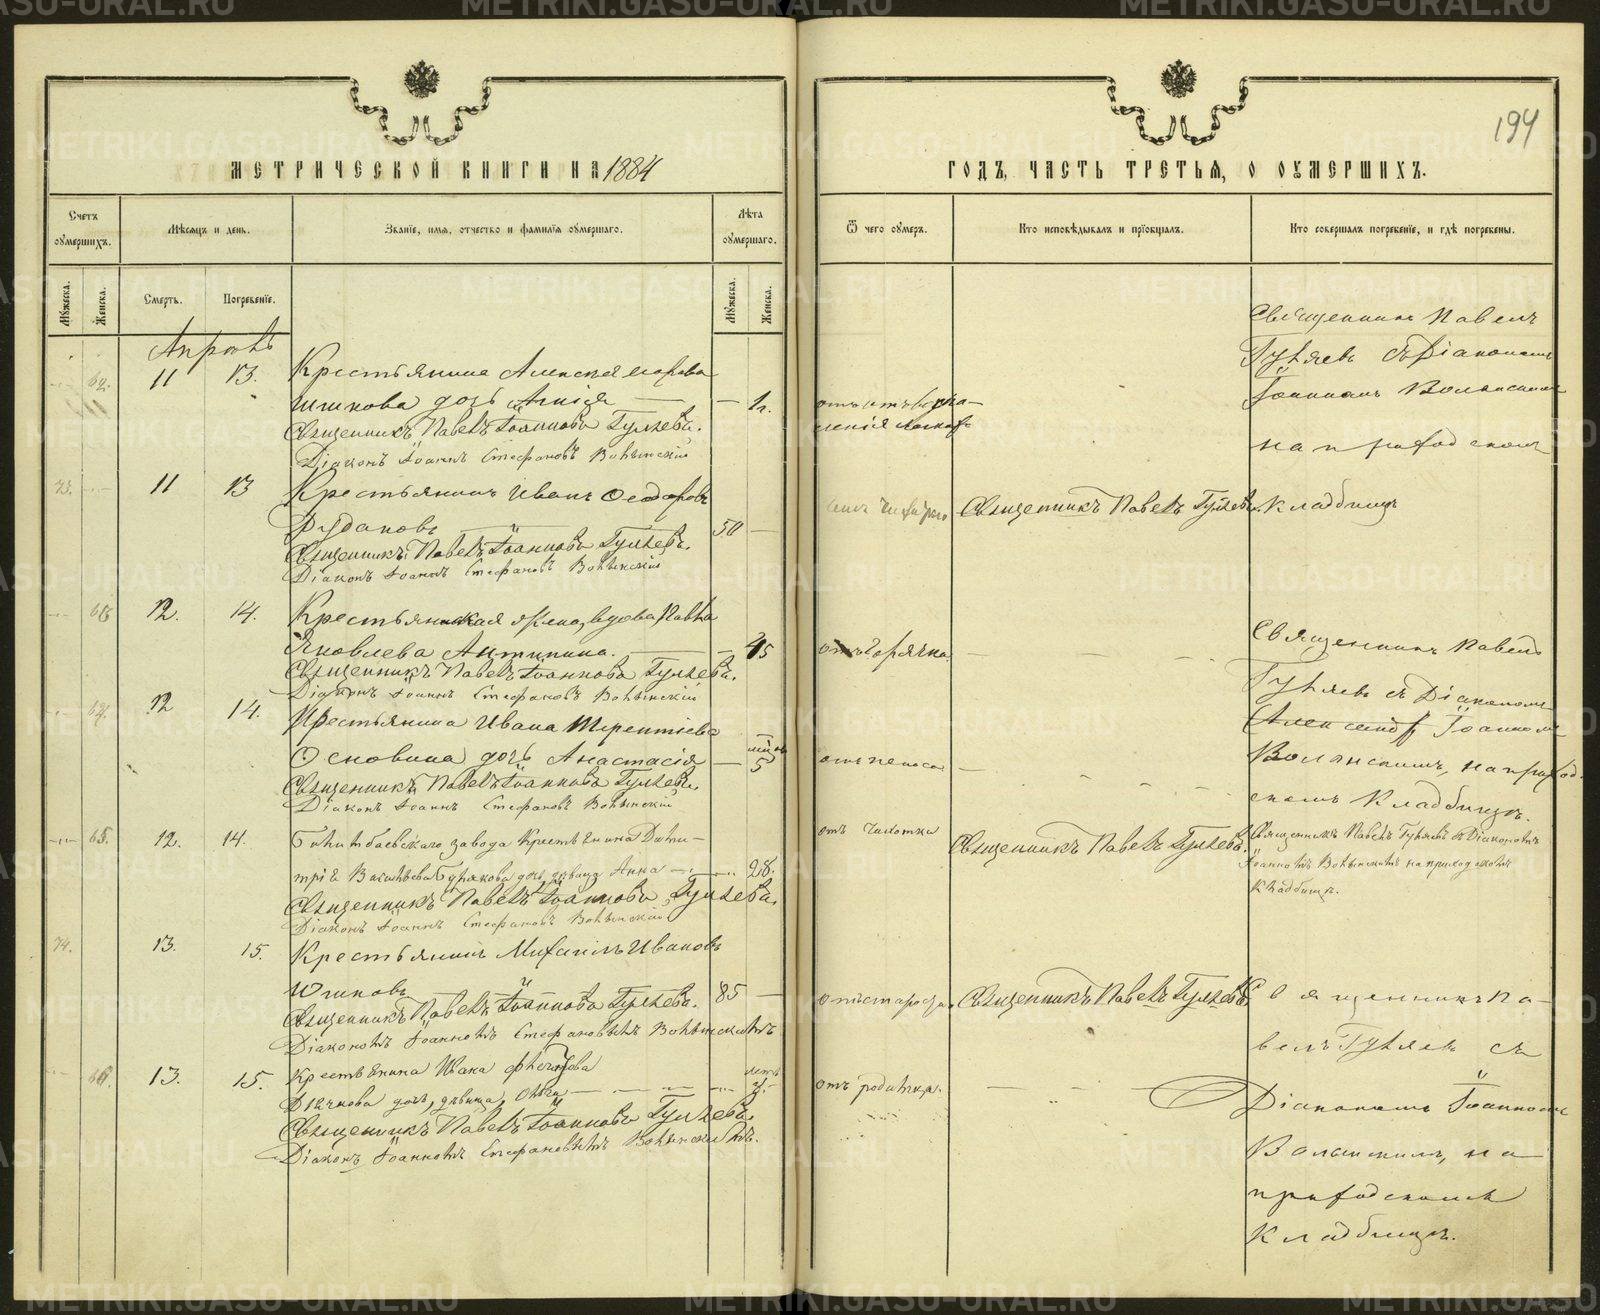 194
МЕТРИЧЕСКОЙ КНИГИ НА 1884
ГОДЪ, ЧАСТЬ ТРЕТЬЯ, О ОУМЕРШИХЪ.
Счетъ оумершихъ.
Мѣсяцъ и день.
Званїе, имя, отчество и фамилїя оумершаго.
Лѣта оумершаго.
Ѿ чего оумеръ.
Кто исповѣдывалъ и прїобщалъ.
Кто совершалъ погребенїе, и гдѣ погребены.
Мужеска.
Женска.
Смерть.
Погребенїе.
Мужеска.
Женска.
Апрѣль
62. 11 13. Крестьянина Алексея
Шикова дочь — 1 г.
Священникъ Павелъ Іоанновъ Гуляевъ.
Діаконъ Іоаннъ Стефановъ Волынскій
Священникъ Павелъ
Гуляевъ съ Діакономъ
Іоанномъ Волынскимъ
на приходскомъ
кладбищѣ
73. 11 13 Крестьянинъ Иванъ Ѳеодоровъ
50
Священникъ Павелъ Іоанновъ Гуляевъ.
Діаконъ Іоаннъ Стефановъ Волынскій
Священникъ Павелъ Гуляевъ.
63 12. 14. Крестьянская жена, вдова
Яковлева Антипина. — 45
Священникъ Павелъ Іоанновъ Гуляевъ.
Діаконъ Іоаннъ Стефановъ Волынскій
отъ горячки
Священникъ Павелъ
Гуляевъ съ Діакономъ
Іоанномъ
Волынскимъ, на приход-
скомъ кладбищѣ.
64. 12 14. Крестьянина Ивана Терентіева
Основина дочь Анастасія — 5
Священникъ Павелъ Іоанновъ Гуляевъ.
Діаконъ Іоаннъ Стефановъ Волынскій
отъ поноса
65. 12. 14. завода Крестьянина Дими-
трія Васильева дочь, девица Анна — 28.
Священникъ Павелъ Іоанновъ Гуляевъ.
Діаконъ Іоаннъ Стефановъ Волынскій
отъ чахотки
Священникъ Павелъ Гуляевъ.
Священникъ Павелъ Гуляевъ съ Діакономъ
Іоанномъ Волынскимъ на приходскомъ
кладбищѣ.
74. 13. 15. Крестьянинъ Михаилъ Ивановъ
Шиковъ 85 —
Священникъ Павелъ Іоанновъ Гуляевъ.
Діакономъ Іоанномъ Стефановымъ Волынскимъ
отъ старости
Священникъ Павелъ Гуляевъ
Священникъ Па-
велъ Гуляевъ съ
Діакономъ Іоанномъ
Волынскимъ, на
приходскомъ
кладбищѣ.
66. 13. 15. Крестьянина Ивана
дочь, девица,
Священникъ Павелъ Іоанновъ Гуляевъ.
Діаконъ Іоанномъ Стефановымъ Волынскимъ.
отъ родимца.
METRIKI.GASO-URAL.RU